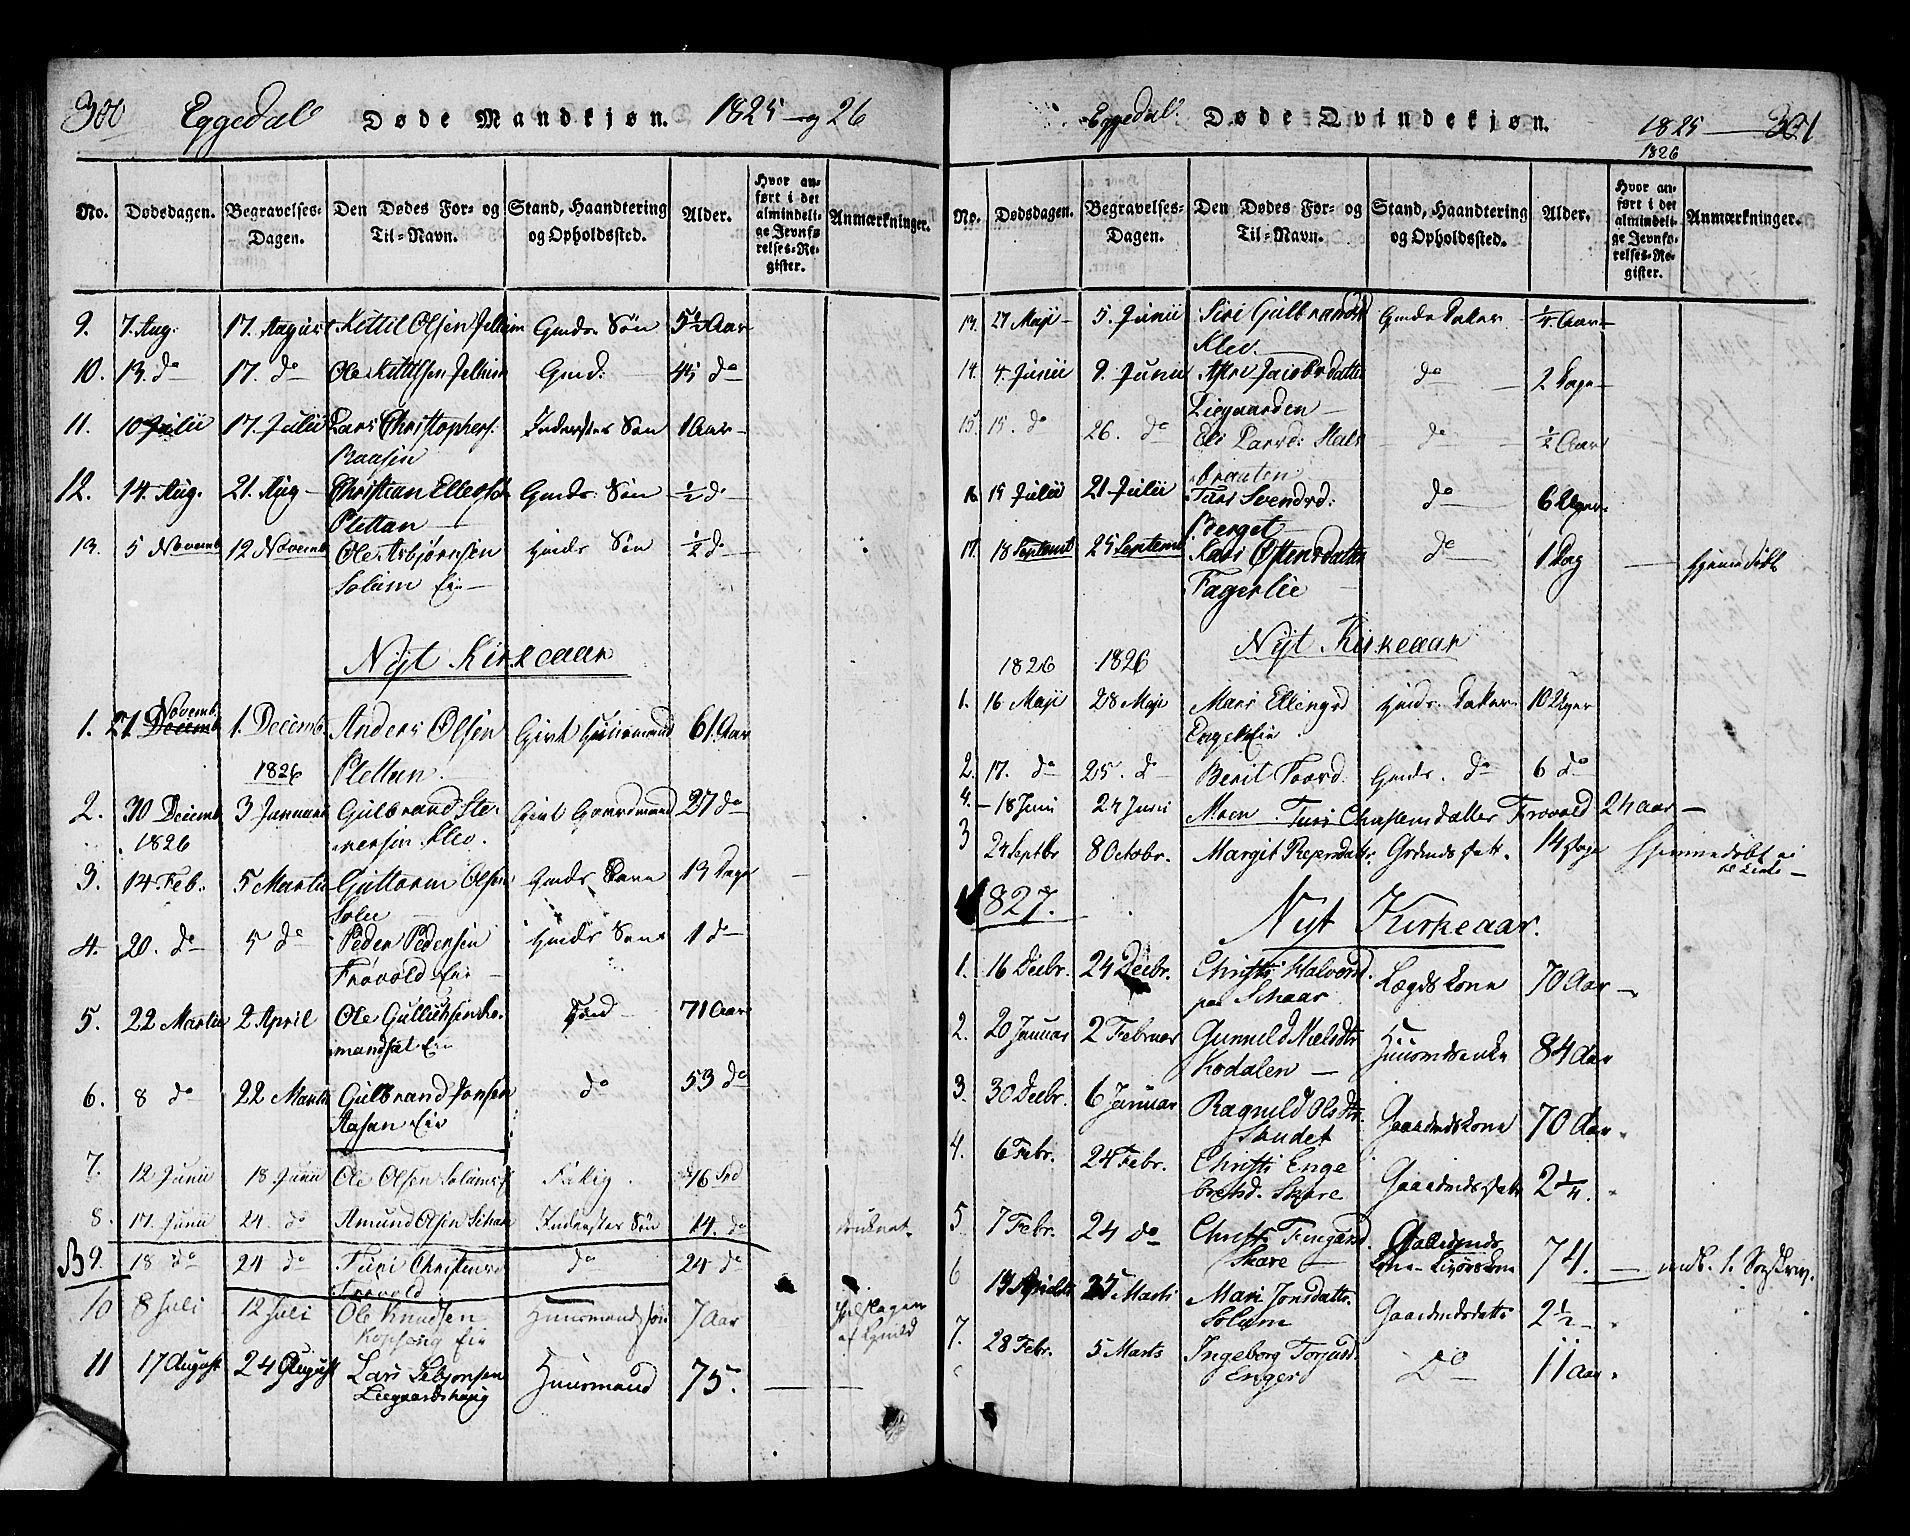 300 Eggedal Døde Mandkjøn. 1825 og 26
No. Dødsdagen. Begravelses-Dagen. Den Dødes For- og Til-Navn. Stand, Haandtering og Opholdssted. Alder. Hvor anført i det almindelige Jevnførelses-Register. Anmærkninger.
9. 7. Aug. 17. August Kittil Olsen Gmds. Søn 5½ Aar
10. 13. do 17. do Ole Kittilsen Gmd: 45 do
11. 10 Julii 17. Julii Lars Christophers. Inderstes Søn 1 Aar
Raasen
12. 14. Aug. 21. Aug Christian Ellefsen Gmds: Søn ½ do
Plettan
13. 5 Novemb 12 Novemb Ole Asbjørnsen Hmds Søn ½ do
Solum Eie
Nyt Kirkeaar
1. 27. Novemb. Decemb 1. Decemb. Anders Olsen Givt Huusmand 61. Aar
1826 Plettan
2. 30 Decemb 3 Januarii Gulbrand Ste- Givt Gaardmand 27 do
1826 nersen Klev.
3. 14 Feb. 5 Martii Guttorm Olsen Gmds Barn 13 Dage
4. 20. do 5 do Peder Pedersen Hmds Søn 1 do
Frøvold Eie
5. 22 Martii 2 April Ole Gulliksen Ro- 71 Aar
mandsæt Eie
6. 8 do 22 Martii Gulbrand Jonsen do 53 do
Aasan Eie
7. 12 Junii 18 Junii Ole Olsen Fattig. 46
8. 17. Junii 24. do Amund Olsen Inderstes Søn 14. do druknet
B9. 18 do 24 do Turi Christensd do 24 do
Frøvold
10 8 Juli 12 Juli Ole Knudsen Huusmandssøn 7 Aar
Kopseng Eie
11 17 August 24 August Lars Huusmand 75.
Liegaardshaug
Eggedal. Døde Qvindekjøn. 1825 301
1826
No. Dødsdagen. Begravelses-Dagen. Den Dødes For- og Til-Navn. Stand, Haandtering og Opholdssted. Alder. Hvor anført i det almindelige Jevnførelses-Register. Anmærkninger.
13. 27 Maji 5. Junii Siri Gulbrandsd Gmds Datter ¼ Aar
Klev.
14. 4 Junii 9. Junii Jacobsdatter do 2 Dage
Liegaarden
15. 15. do 26. do Eli Larsd: do ½ Aar
braaten
16. 15 Julii 21 Julii Turi Svendsd: do 6 Uger
Berget
17. 18 Septemb 25 Septemb Kari Ostensdatter do 1 Dag Hjemmedøbt
Fagerlie
Nyt Kirkeaar
1826 1826
1. 16 Maji 28 Maji Mari Ellingsd Hmds. Datter 10 Uger
2. 17. do 25. do Berit Toord. Gmds. do 6 do
4. 18 Juni 24 Juni Moen Turi Christensdatter Frovold 24 aar
3 24 Septbr 8 Octobr. Margit Gaardmds Datt. 14 Dage Hjemmedøbt
1827. Nyt Kirkeaar.
1. 16 Decbr. 24 Decbr. Christi Halvorsd. Lægdskone 70 Aar
paa Schaar
2. 20 Januar 2 Februar Gunnild Nielsdtr Huusmdsenke 84 Aar
Kodalen
3. 30 Decbr. 6 Januar Ragnild Olsdtr. Gaardmdskone 70 Aar
Skudet
4. 6 Febr. 24 Febr. Christi Enge Gaardmdsdattr 2¼
bretsd. Skare
5 7 Febr. 24 do Christi Fingarsd. 74.
Skare
6 25 Marts Mari Jonsdattr. Gaardmdsdattr 2½
Solum
7. 28 Febr. 5 Marts Ingeborg Torjusd. Do 11 Aar
Engerd